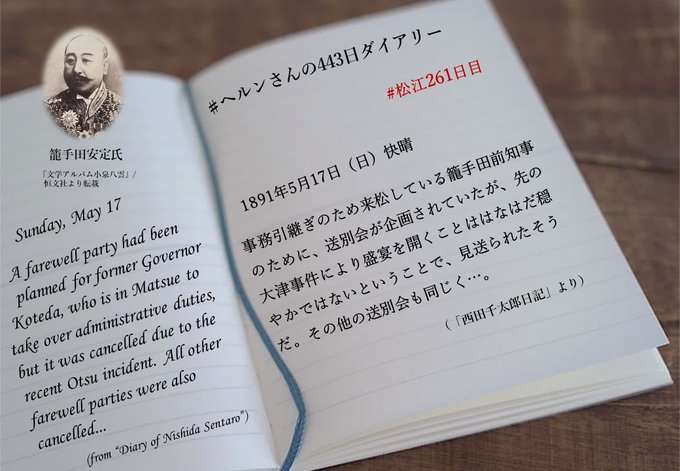 籠手田安定氏
「文学アルバム小泉八雲」/
恒文社より転載
Sunday, May 17
A farewell party had been
planned for former Governor
Koteda, who is in Matsue to
take over administrative duties,
but it was cancelled due to the
recent Otsu incident. All other
farewell parties were also
cancelled...
(from "Diary of Nishida Sentaro")
#ヘルンさんの443日ダイアリー
#松江261日目
1891年5月17日（日）快晴
事務引継ぎのため来松している籠手田前知事
のために、送別会が企画されていたが、先の
大津事件により盛宴を開くことははなはだ穏
やかではないということで、見送られたそう
だ。その他の送別会も同じく…。
（「西田千太郎日記」より）